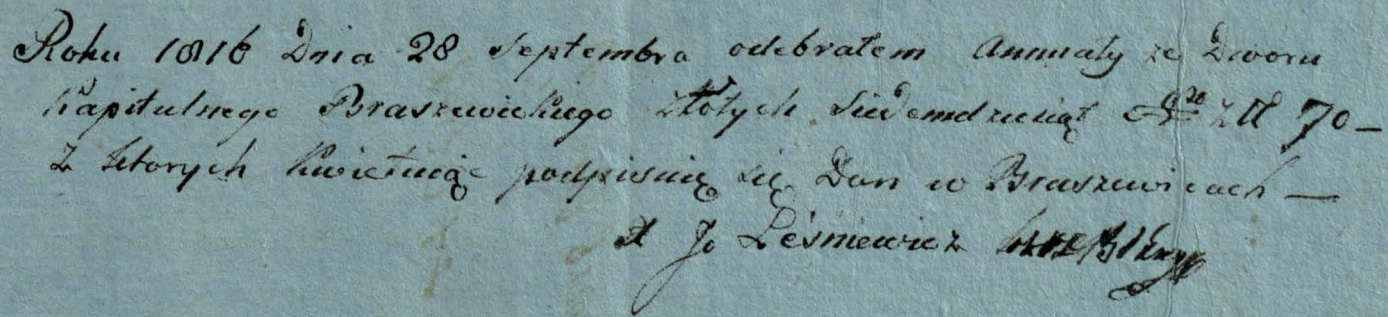 Roku 1816 Dnia 28 Septembra odebrałem Annuaty ze Dworu
Kapitulnego Braszewickiego złotych Siedemdziesiąt Złł 70 —
Z ktorych kwietuiąc podpisuię się Dan w Braszewicach —
X Jo Leśniewicz